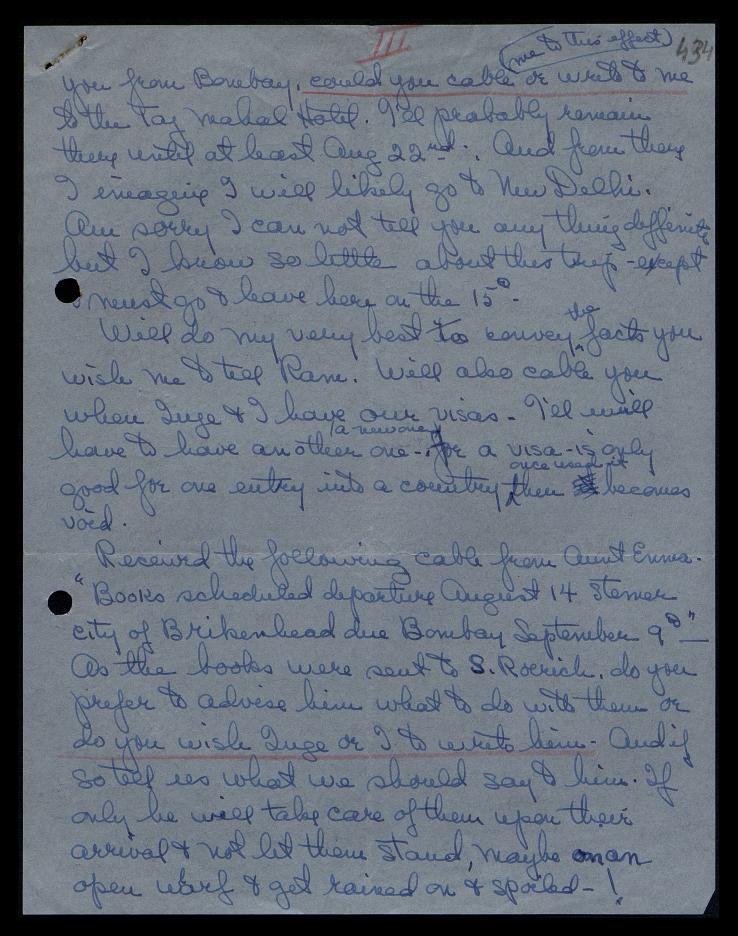 III
(me to this effect)
434
you from Bombay, could you cable or write to me
to the Taj Mahal Hotel. I'll probably remain
there until at least Aug 22nd. And from there
I imagine I will likely go to New Delhi.
Am sorry I can not tell you any thing deffinite
but I know so little about this trip - except
I must go & leave here on the 15th.
Will do my very best to convey the facts you
wish me to tell Ram. Will also cable you
when Inge & I have our visas - I'll
have to have another one - (a new one) for a visa - is only
good for one entry into a country, once used it then becomes
void.
Received the following cable from Aunt Emma.
"Books scheduled departure August 14 stemer
city of Brikenhead due Bombay September 9th" -
As the books were sent to S. Roerich, do you
prefer to advise him what to do with them or
do you wish Inge or I to write him - And if
so tell us what we should say to him. If
only he will take care of them upon their
arrival & not let them stand, maybe on an
open warf & get rained on & spoiled - !